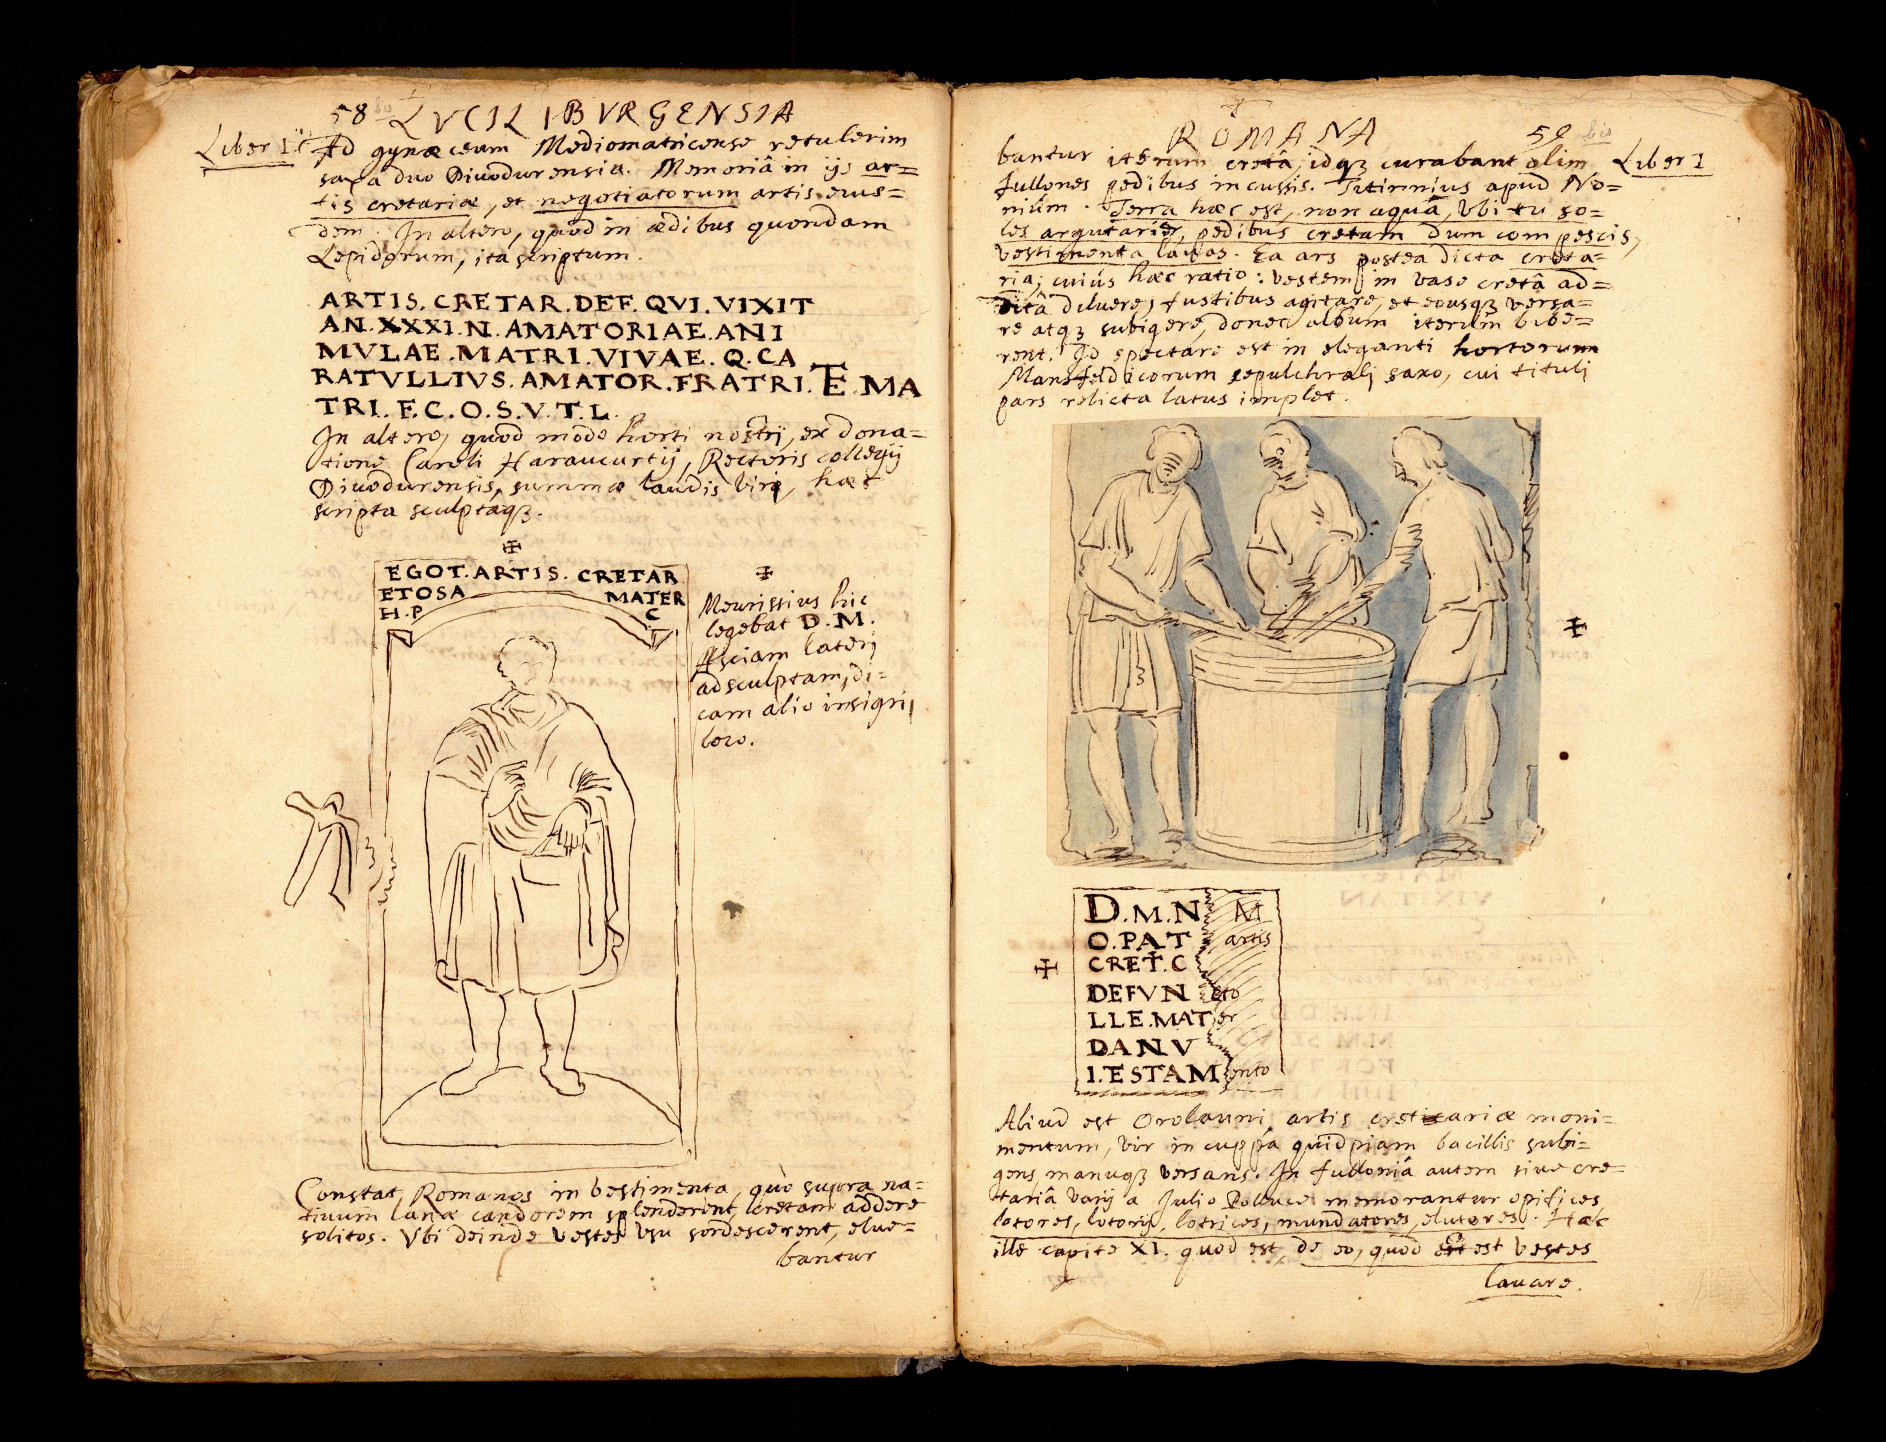 58 LVCILIBVRGENSIA
Liber I
Ad gynæceum Mediomatricense retulerim
saxa duo Diuodurensia. Memoriâ in ijs ar=
tis cretariæ, et negotiatorum artis eius=
dem. In altero, quod in ædibus quondam
Lepidorum, ita scriptum.
ARTIS. CRETAR. DEF. QVI. VIXIT
AN. XXXI. N. AMATORIAE. ANI
MVLAE. MATRI. VIVAE. Q. CA
RATVLLIVS. AMATOR. FRATRI. TE. MA
TRI. F. C. O. S. V. T. L.
In altero, quod modo horti nostri, ex dona=
tione Caroli Haraucurtij, Rectoris collegij
Diuodurensis, summæ laudis viri, hæc
scripta sculptaqȝ.
EGOT. ARTIS. CRETAR
ETOSA MATER
H. P C
Meurissius hic
legebat D. M.
Asciam laterj
adsculptam, di=
cam alio insignj
loco.
Constat, Romanos in vestimenta, quò supra na=
tiuum lanæ candorem splenderent, cretam addere
solitos. Vbi deinde vestes vsu sordescerent, elue=
bantur
ROMANA 59 bis
Liber I
bantur iterum cretâ, idqȝ curabant olim
fullones pedibus incussis. Titinnius apud No=
nium. Terra hæc est, non aquâ, Vbi tu so=
les argutarier, pedibus cretam dum compescis,
vestimenta lauas. Ea ars postea dicta creta=
ria; cuius hæc ratio: vestem in vase cretâ ad=
ditâ diluere, fustibus agitare, et eousqȝ versa=
re atqȝ subigere, donec album iterum bibe=
rent. Id spectare est in eleganti hortorum
Mansfeldicorum sepulchralj saxo, cui tituli
pars relicta latus implet.
D. M. N M
O. PAT artis
CRET. C
DEFVN cto
LLE. MAT er
DANV
I. ESTAM ento
Aliud est Orolauni artis cretariæ moni=
mentum, vir in cuppâ quidpiam bacillis subi=
gens, manuqȝ versans. In fulloniâ autem siue cre=
tariâ varij a Julio Polluce memorantur opifices
lotores, lotorij, lotrices, mundatores, elutores. Hæc
ille capite XI. quod est, de eo, quod est vestes
lauare.